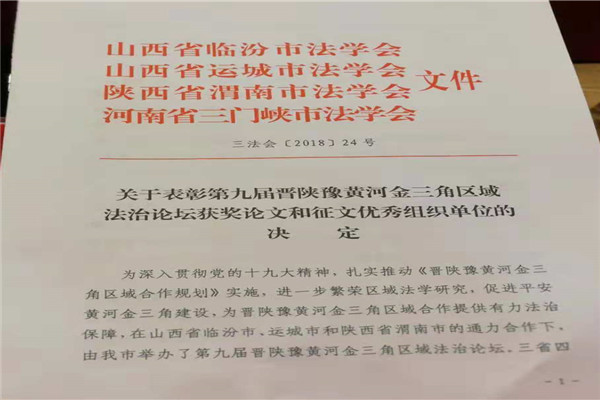 山西省临汾市法学会
山西省运城市法学会
陕西省渭南市法学会
河南省三门峡市法学会
文件
三法会〔2018〕24号
关于表彰第九届晋陕豫黄河金三角区域
法治论坛获奖论文和征文优秀组织单位的
决 定
为深入贯彻党的十九大精神，扎实推动《晋陕豫黄河金三
角区域合作规划》实施，进一步繁荣区域法学研究，促进平安
黄河金三角建设，为晋陕豫黄河金三角区域合作提供有力法治
保障，在山西省临汾市、运城市和陕西省渭南市的通力合作下，
由我市举办了第九届晋陕豫黄河金三角区域法治论坛。三省四
- 1 -